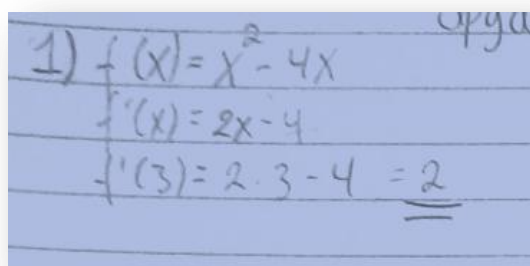 1) f(x) = x² - 4x
f'(x) = 2x - 4
f'(3) = 2 · 3 - 4 = 2